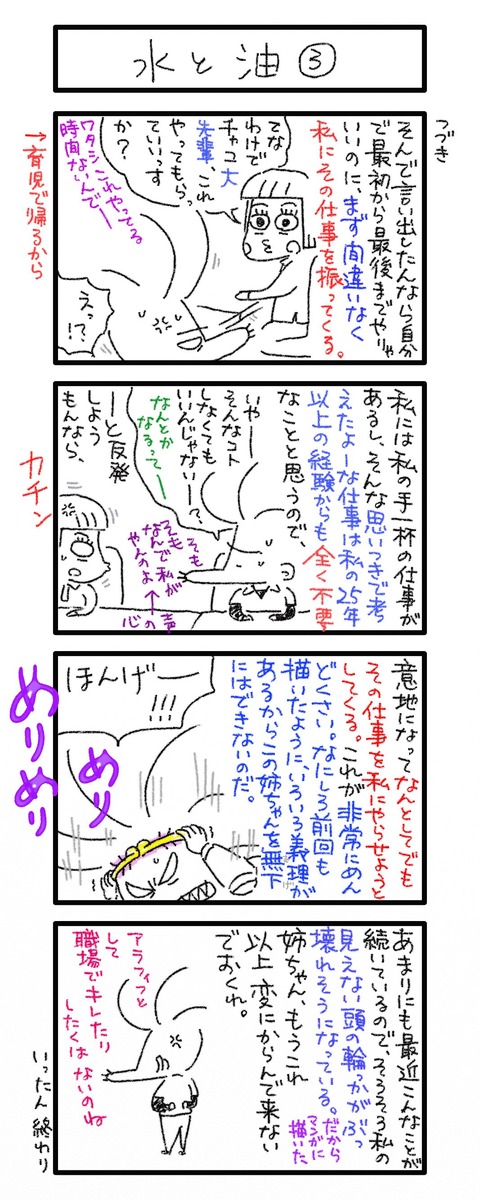 水と油③
つづき
そんで言い出したんなら自分
で最初から最後までやりゃ
いいのに、まず間違いなく
私にその仕事を振ってくる。
てな
わけで
チャコ大
先輩、これ
やってもらっ
ていいっす
か？
ワタシこれやってる
時間ないんでー
→育児で帰るから
えっ!?
私には私の手一杯の仕事が
あるし、そんな思いつきで考
えたよーな仕事は私の25年
以上の経験からも全く不要
なことと思うので、
いやー
そんなコト
しなくても
いいんじゃないー？、
なんとか
なるってー
ーと反発
しよう
もんなら、
そも
そも
なんで私が
やんのよ
←心の声
カチン
意地になってなんとしてでも
その仕事を私にやらせようと
してくる。これが非常にめん
どくさい。なにしろ前回も
描いたようにいろいろ義理が
あるからこの姉ちゃんを無下
にはできないのだ。
ほんげー
!!!
めり
めりめり
あまりにも最近こんなことが
続いているので、そろそろ私の
見えない頭の輪っかがぶっ
壊れそうになっている。
だから
マンガに
描いた
姉ちゃん、もうこれ
以上変にからんで来ない
でおくれ。
アラフィフと
して
職場でキレたり
したくはないのね
いったん終わり